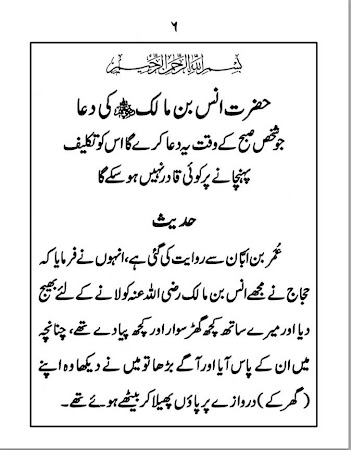 ۶
بسم اللہ الرحمن الرحیم
حضرت انس بن مالک رضی اللہ عنہ کی دعا
جو شخص صبح کے وقت یہ دعا کرے گا اس کو تکلیف
پہنچانے پر کوئی قادر نہیں ہو سکے گا
حدیث
عُمر بن ابان سے روایت کی گئی ہے، انہوں نے فرمایا کہ
حجاج نے مجھے انس بن مالک رضی اللہ عنہ کو لانے کے لئے بھیج
دیا اور میرے ساتھ کچھ گھڑ سوار اور کچھ پیادے تھے، چنانچہ
میں ان کے پاس آیا اور آگے بڑھا تو میں نے دیکھا وہ اپنے
(گھر کے) دروازے پر پاؤں پھیلا کر بیٹھے ہوئے تھے۔